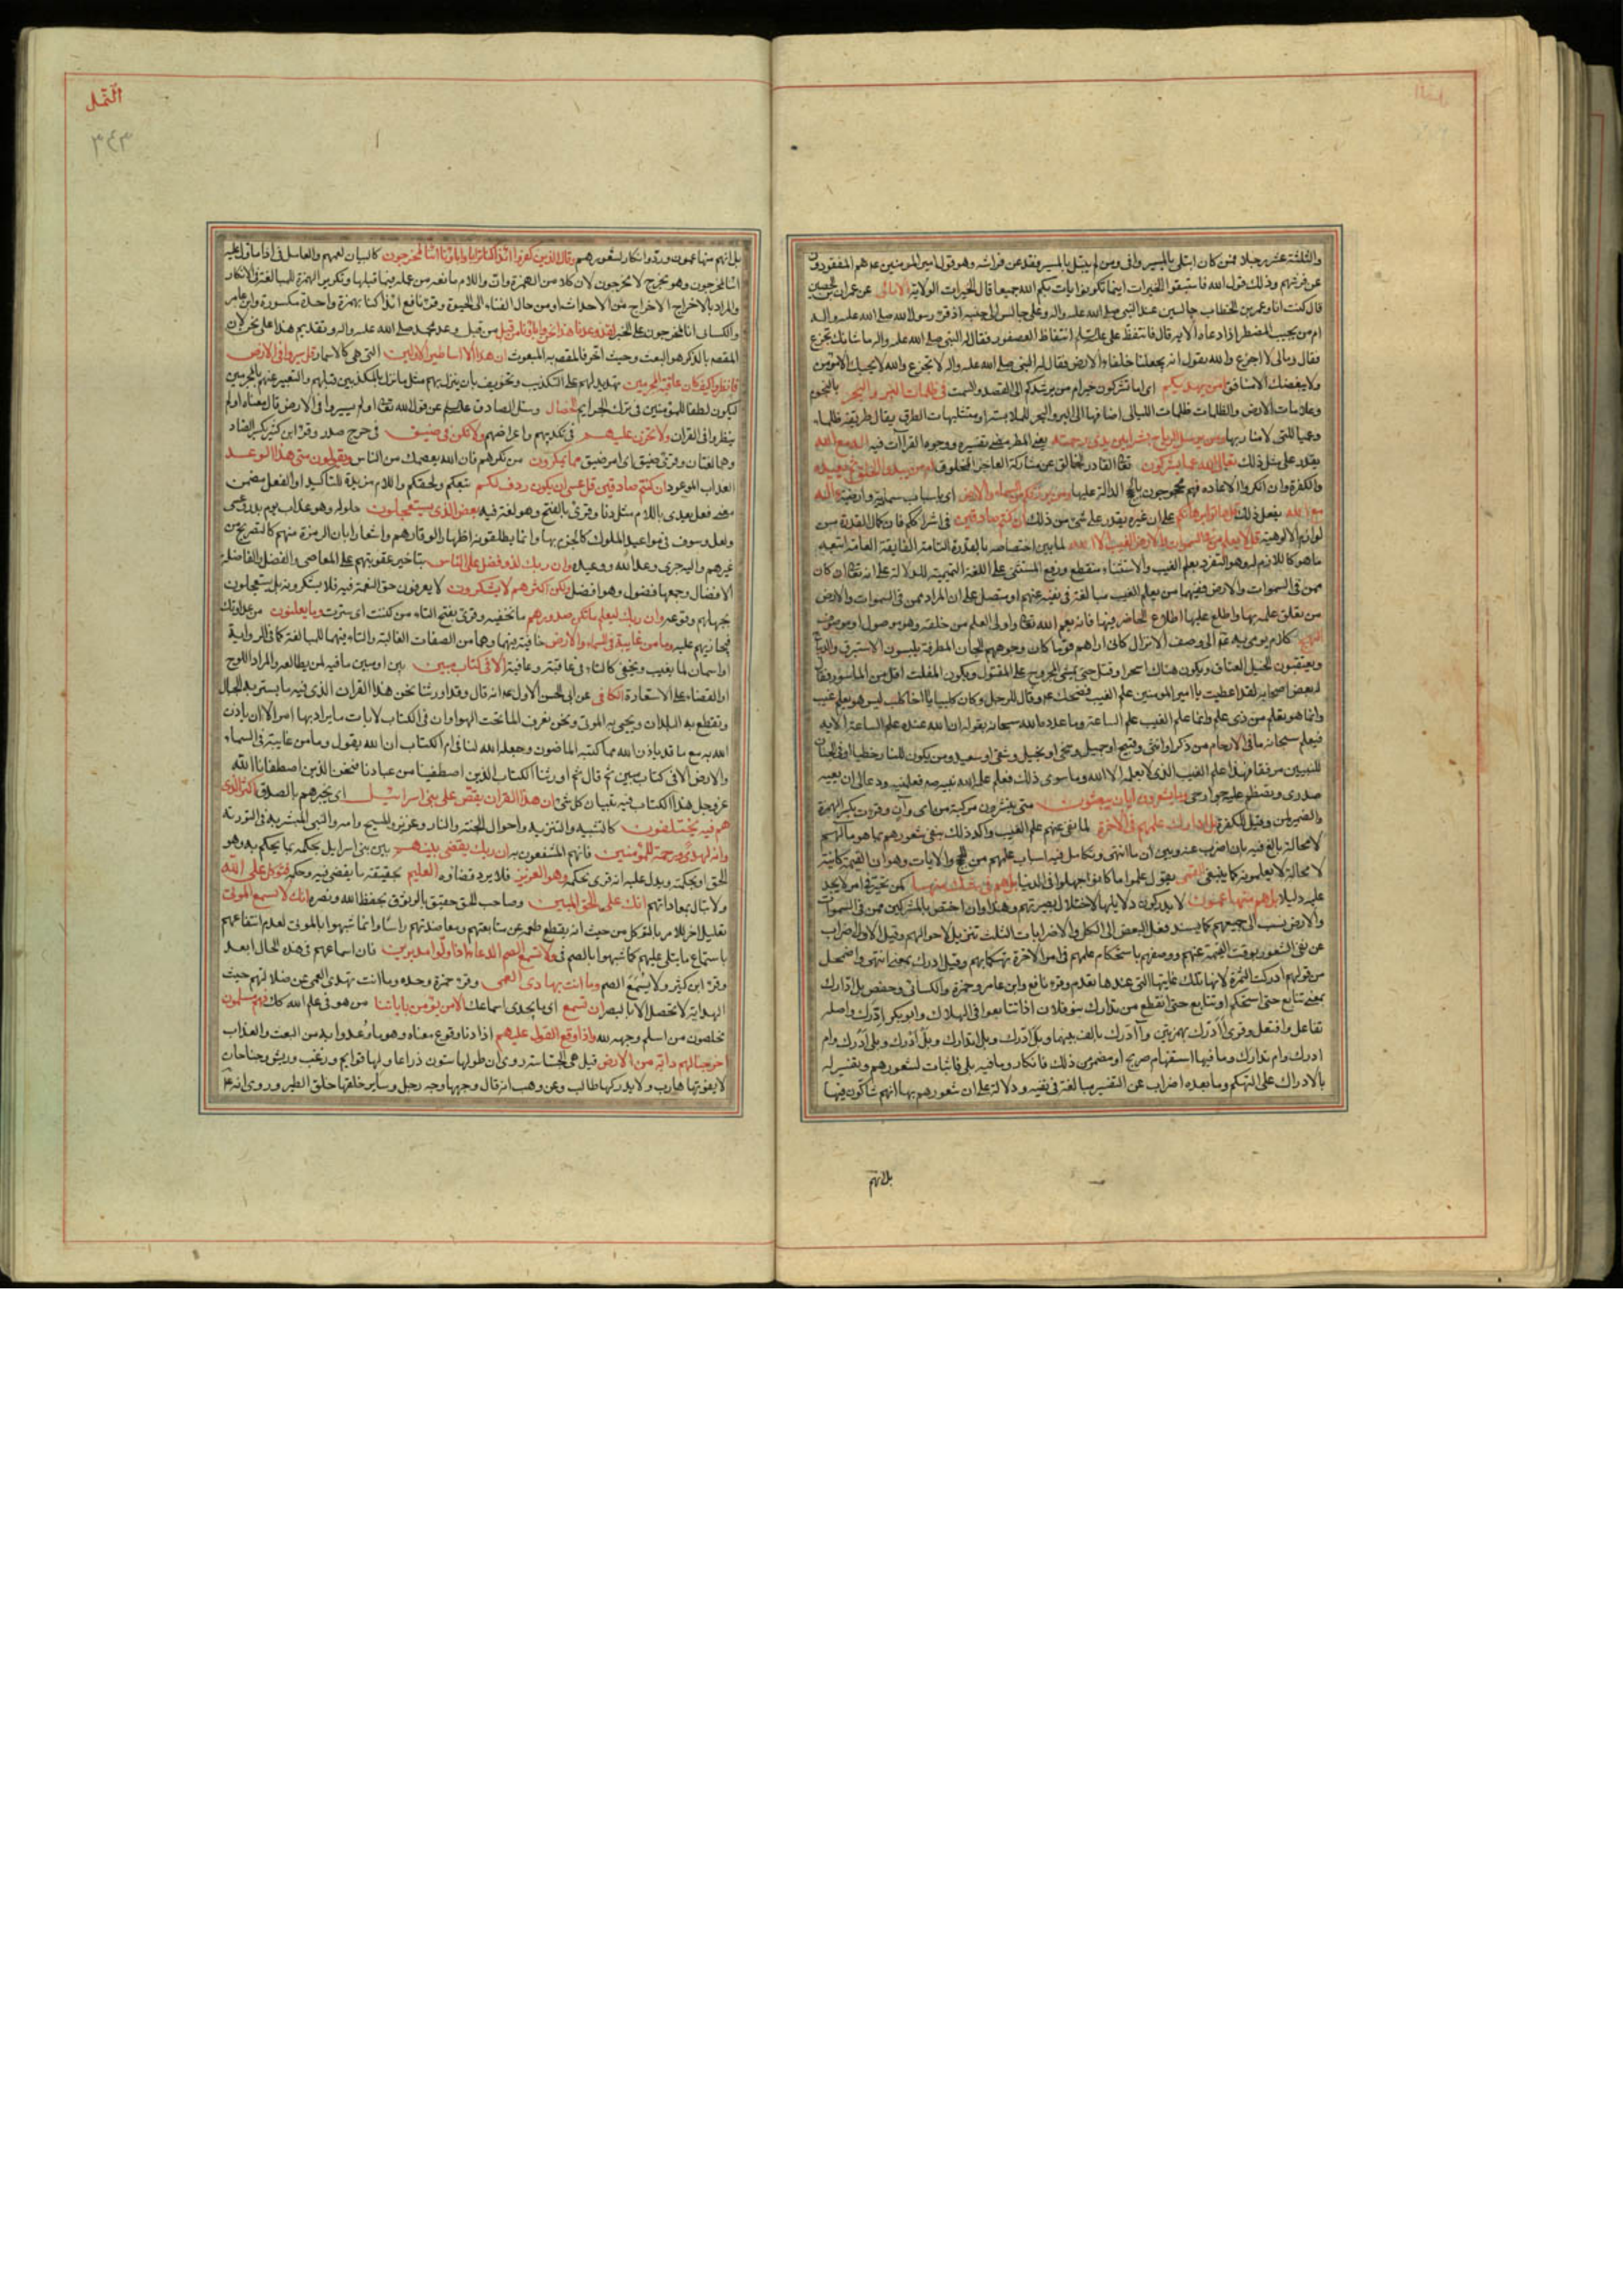 والثلثة عشر رجلا فمن كان ابتلى بالمسير وافى ومن لم يبتل بالمسير فقد عن فراشه وهو قول امير المؤمنين ع هم المفقودون
عن فرشهم وذلك قول الله فاستبقوا الخيرات اينما تكونوا يات بكم الله جميعا قال الخيرات الولاية الامالى عن عمران بن حصين
قال كنت انا وعمر بن الخطاب جالسين عند النبى صلى الله عليه واله وعلى جالس الى جنبه اذ قرء رسول الله صلى الله عليه واله
ام من يجيب المضطر اذا دعاه الاية قال فانتفض على عليه السلام انتفاض العصفور فقال له النبى صلى الله عليه واله ما شانك تجزع
فقال ومالى لا اجزع والله يقول انه يجعلنا خلفاء الارض فقال له النبى صلى الله عليه واله لا تجزع والله لا يحبك الا مؤمن
ولا يبغضك الا منافق امن يهديكم فى ظلمات البر والبحر بالنجوم
وعلامات الارض والظلمات ظلمات الليالى اضافها الى البر والبحر للملابسة او مشتبهات الطرق يقال طريقة ظلماء
وعمياء للتى لا منار بها ومن يرسل الرياح بشرا بين يدى رحمته يعنى المطر مضى تفسيره ووجوه القراات فيه اله مع الله
يقدر على مثل ذلك تعالى الله عما يشركون تعالى القادر الخالق عن مشاركة العاجز المخلوق ام من يبدء الخلق ثم يعيده
والكفرة وان انكروا الاعادة فهم محجوجون بالحجج الدالة عليها ومن يرزقكم من السماء والارض اى باسباب سماوية وارضية ءاله
مع الله يفعل ذلك قل هاتوا برهانكم على ان غيره يقدر على شئ من ذلك ان كنتم صادقين فى اشراككم فان كمال القدرة من
لوازم الالوهية قل لا يعلم من فى السموات والارض الغيب الا الله لما بين اختصاصه بالقدرة التامة الفايقة العامة اتبعه
ماهو كاللازم له وهو التفرد بعلم الغيب والاستثناء منقطع ورفع المستثنى على اللغة التميمية للدلالة على انه تعالى ان كان
ممن فى السموات والارض ففيهما من يعلم الغيب مبالغة فى نفيه عنهم او متصل على ان المراد ممن فى السموات والارض
من تعلق علمه بها واطلع عليها اطلاع الحاضر فيها فانه يعم الله تعالى واولى العلم من خلقه وهو موصول او موصوف
فيعلم سبحانه ما فى الارحام من ذكر او انثى وقبيح او جميل وسخى او بخيل وشقى او سعيد ومن يكون للنار حطبا او فى الجنان
للنبيين مرافقا فهذا علم الغيب الذى لا يعلمه الا الله وما سوى ذلك فعلم علم الله نبيه فعلمنيه ودعا لى ان يعيه
صدرى وتضطم عليه جوارحى وما يشعرون ايان يبعثون متى ينشرون مركبة من اى وآن وقرئت بكسر الهمزة
والضمير لمن وقيل للكفرة بل ادارك علمهم فى الاخرة لما نفى عنهم علم الغيب واكد ذلك بنفى شعورهم بما هو مآلهم
لا محالة بالغ فيه بان اضرب عنه وبين ان ما انتهى وتكامل فيه اسباب علمهم من الحجج والايات وهو ان القيمة كاينة
لا محالة لا يعلمونه كما ينبغى بل هم فى شك منها كمن تحير فى امر لا يجد
عليه دليلا بل هم منها عمون لا يدركون دلايلها لاختلال بصيرتهم وهذا وان اختص بالمشركين ممن فى السموات
والارض نسب الى جميعهم كما يسند فعل البعض الى الكل والاضرابات الثلث تنزيل لاحوالهم وقيل الاول اضراب
عن نفى الشعور بوقت القيمة عنهم ووصفهم باستحكام علمهم فى امر الاخرة تهكما بهم وقيل ادرك بمعنى انتهى واضمحل
من قولهم ادركت الثمرة لانها تلك غايتها التى عندها تعدم وقرء نافع وابن عامر وحمزة والكسائى وحفص بل ادارك
بمعنى تتابع حتى استحكم او تتابع حتى انقطع من تدارك بنو فلان اذا تتابعوا فى الهلاك وابو بكر ادرك واصله
تفاعل وافتعل وقرئ أأدرك بهمزتين وآادرك بالف بينهما وبل ادرك وبل تدارك وبل أأدرك وبلى أأدرك وام
ادرك وام تدارك وما فيها استفهام صريح او مضمر من ذلك فانكار وما فيه بلى فاثبات لشعورهم وتفسير له
بالادراك على التهكم وما بعده اضراب عن التفسير مبالغة فى نفيه ودلالة على ان شعورهم بها انهم شاكون فيها
بل انهم
النمل
٣٤٣
بل انهم منها عمون ورد وانكار لشعورهم وقال الذين كفروا ائذا كنا ترابا واباؤنا ائنا لمخرجون كالبيان لعمههم والعامل فى اذا ما دل عليه
ائنا لمخرجون وهو نخرج لا مخرجون لان كلا من الهمزة وان واللام مانعة من عمله فيما قبلها وتكرير الهمزة للمبالغة فى الانكار
والمراد بالاخراج الاخراج من الاحداث او من حال الفناء الى الحيوة وقرء نافع اذا كنا بهمزة واحدة مكسورة وابن عامر
والكسائى اننا لمخرجون على الخبر لقد وعدنا هذا نحن واباؤنا من قبل من قبل وعد محمد صلى الله عليه واله وتقديم هذا على نحن لان
المقصود بالذكر هو البعث وحيث اخر فالمقصود به المبعوث ان هذا الا اساطير الاولين التى هى كالاسمار قل سيروا فى الارض
فانظروا كيف كان عاقبة المجرمين تهديد لهم على التكذيب وتخويف بان ينزل بهم مثل ما نزل بالمكذبين قبلهم والتعبير عنهم بالمجرمين
ليكون لطفا للمؤمنين فى ترك الجرايم الخصال وسئل الصادق عليه السلام عن قول الله تعالى اولم يسيروا فى الارض قال معناه اولم
ينظروا فى القران ولا تحزن عليهم فى تكذيبهم واعراضهم ولا تكن فى ضيق فى حرج صدر وقرء ابن كثير بكسر الضاد
وهما لغتان وقرئ ضيق اى امر ضيق مما يمكرون من مكرهم فان الله يعصمك من الناس ويقولون متى هذا الوعد
العذاب الموعود ان كنتم صادقين قل عسى ان يكون ردف لكم تبعكم ولحقكم واللام مزيدة للتاكيد او الفعل مضمن
معنى فعل يعدى باللام مثل دنا وقرئ بالفتح وهو لغة فيه بعض الذى تستعجلون حلوله وهو عذاب يوم بدر وعسى
ولعل وسوف فى مواعيد الملوك كالجزم بها وانما يطلقونه اظهارا لوقارهم واشعارا بان الرمزة منهم كالتصريح من
غيرهم واليه جرى وعد الله ووعيده وان ربك لذو فضل على الناس بتاخير عقوبتهم على المعاصى والفضل والفاضلة
الافضال وجمعها فضول وهو افضل ولكن اكثرهم لا يشكرون لا يعرفون حق النعمة فيه فلا يشكرونه بل يستعجلون
بجهلهم وقوعه وان ربك ليعلم ما تكن صدورهم ما تخفيه وقرئ بفتح التاء من كننت اى سترت وما يعلنون من عداوتك
فيجازيهم عليه وما من غايبة فى السماء والارض خافية فيهما وهما من الصفات الغالبة والتاء فيهما للمبالغة كما فى الراوية
او اسمان لما يغيب ويخفى كالتاء فى عاقبة وعافية الا فى كتاب مبين بين او مبين ما فيه لمن يطالعه والمراد اللوح
او القضاء على الاستعارة الكافى عن ابى الحسن الاول ع انه قال وقد اورثنا نحن هذا القران الذى فيه ما يسير به الجبال
وتقطع به البلدان ويحيى به الموتى ونحن نعرف الماء تحت الهواء وان فى الكتاب لايات ما يراد بها امر الا ان ياذن
الله به مع ما قد ياذن الله مما كتبه الماضون وجعله الله لنا فى ام الكتاب ان الله يقول وما من غايبة فى السماء
والارض الا فى كتاب مبين ثم قال ثم اورثنا الكتاب الذين اصطفينا من عبادنا فنحن الذين اصطفانا الله
عز وجل هذا الكتاب فيه تبيان كل شئ ان هذا القران يقص على بنى اسرائيل اى يخبرهم بالصدق اكثر الذى
هم فيه يختلفون كالتشبيه والتنزيه واحوال الجنة والنار وعزير والمسيح وامه والنبى المبشر به فى التورية
وانه لهدى ورحمة للمؤمنين فانهم المنتفعون به ان ربك يقضى بينهم بين بنى اسرايل بحكمه بما يحكم به وهو
الحق او بحكمته ويدل عليه انه قرئ بحكمه وهو العزيز فلا يرد قضاؤه العليم بحقيقة ما يقضى فيه وحكمه فتوكل على الله
ولا تبال بمعاداتهم انك على الحق المبين وصاحب الحق حقيق بالوثوق بحفظ الله ونصره انك لا تسمع الموتى
تعليل اخر للامر بالتوكل من حيث انه يقطع طمعه عن متابعتهم ومعاضدتهم راسا وانما شبهوا بالموتى لعدم انتفاعهم
باستماع ما يتلى عليهم كما شبهوا بالصم فى ولا تسمع الصم الدعاء اذا ولوا مدبرين فان اسماعهم فى هذه الحال ابعد
وقرء ابن كثير ولا يسمع الصم وما انت بهادى العمى وقرء حمزة وحده وما انت تهدى العمى عن ضلالتهم حيث
الهداية لا تحصل الا بالبصر ان تسمع اى ما يجدى اسماعك الا من يؤمن باياتنا من هو فى علم الله كذلك فهم مسلمون
مخلصون من اسلم وجهه لله واذا وقع القول عليهم اذا دنا وقوع معناه وهو ما وعدوا به من البعث والعذاب
اخرجنا لهم دابة من الارض قيل هى الجساسة روى ان طولها ستون ذراعا ولها قوايم وزغب وريش وجناحان
لا يفوتها هارب ولا يدركها طالب وعن وهب انه قال وجهها وجه رجل وساير خلقها خلق الطير وروى انه ع